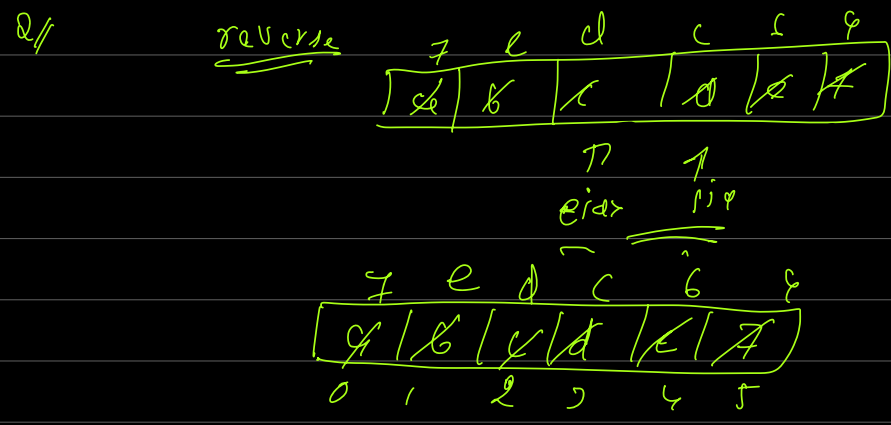 Q// reverse
f e d c b a
a b c d e f
f e d c b a
a b c d e f
0 1 2 3 4 5